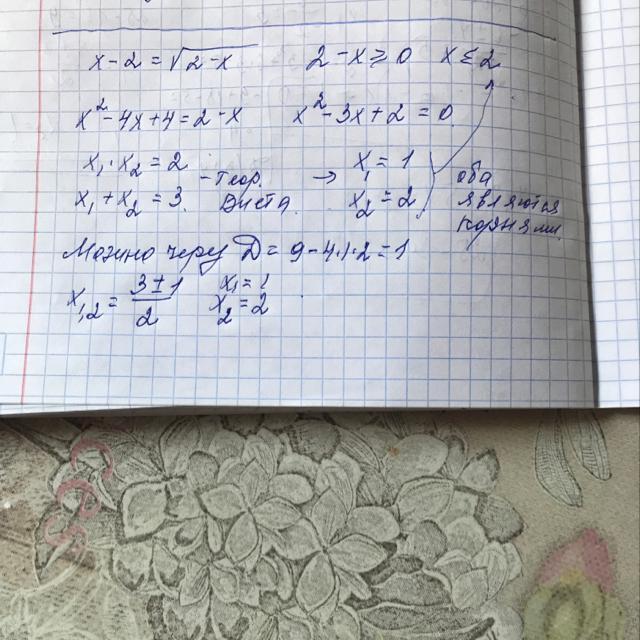 x-2=√2-x 2-x≥0 x≤2
x²-4x+4=2-x x²-3x+2=0
x₁·x₂=2 -теор. → x₁=1 оба
x₁+x₂=3 Виета. x₂=2 являются
корнями.
Можно через D=9-4·1·2=1
x₁,₂=3±1/2 x₁=1
x₂=2